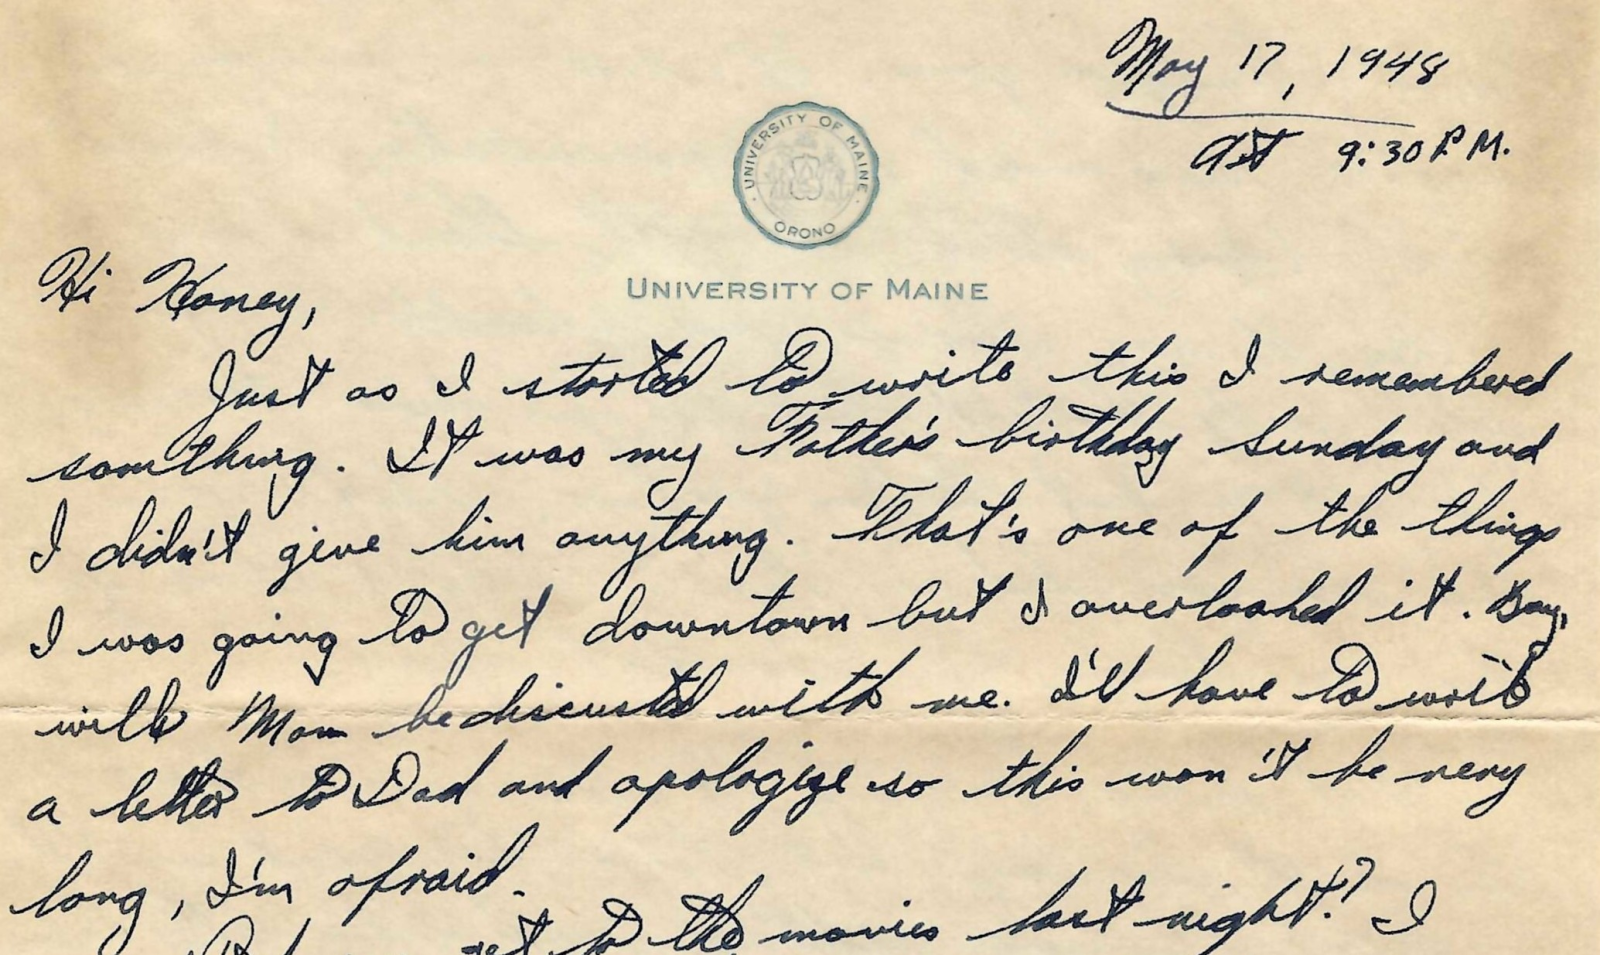 May 17, 1948
at 9:30 P.M.
UNIVERSITY OF MAINE
ORONO
UNIVERSITY OF MAINE
Hi Honey,
Just as I started to write this I remembered
somthing. It was my Father's birthday Sunday and
I didn't give him anything. That's one of the things
I was going to get downtown but I overlooked it. Boy,
will Mom be discusted with me. I'll have to write
a letter to Dad and apologize so this won't be very
long, I'm afraid.
get to the movies last night? I